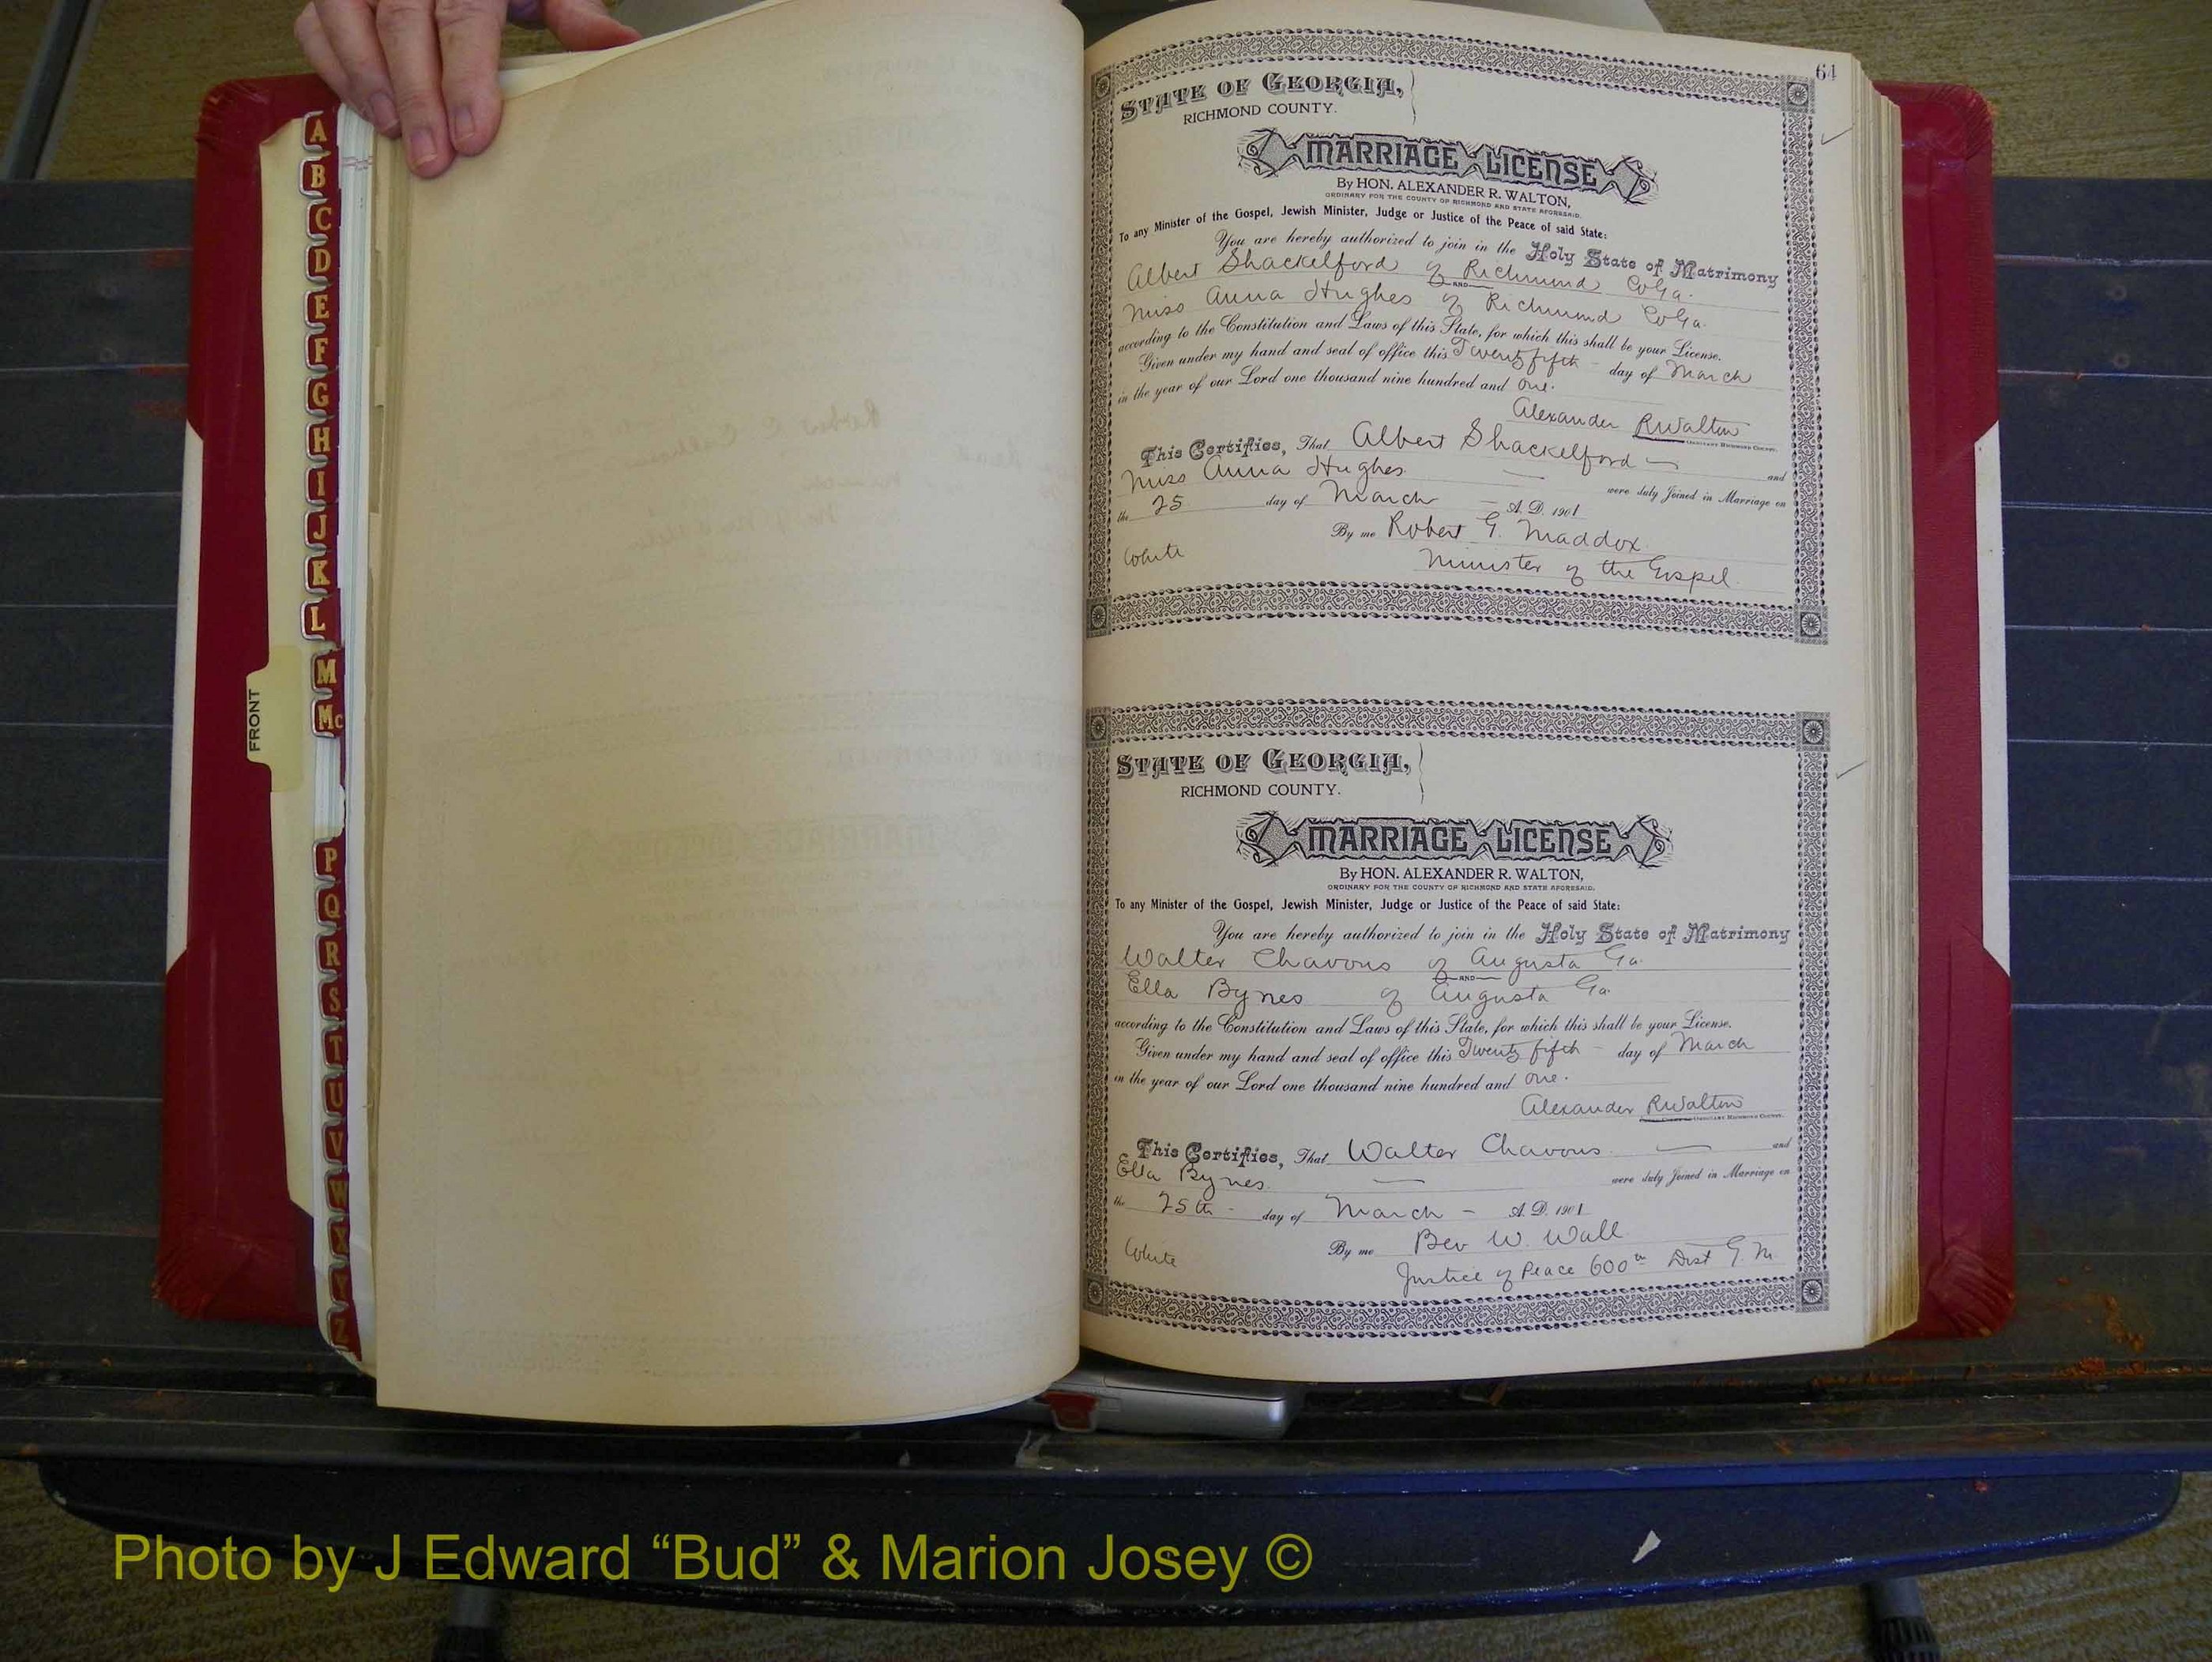 A
B
C
D
E
F
G
H
I
J
K
L
M
Mc
FRONT
P
Q
R
S
T
U
V
W
X
Y
Z
64
STATE OF GEORGIA,
RICHMOND COUNTY.
MARRIAGE LICENSE
By HON. ALEXANDER R. WALTON,
ORDINARY FOR THE COUNTY OF RICHMOND AND STATE AFORESAID.
To any Minister of the Gospel, Jewish Minister, Judge or Justice of the Peace of said State:
You are hereby authorized to join in the Holy State of Matrimony
Albert Shackelford of Richmond Co Ga.
AND
Miss Anna Hughes of Richmond Co Ga.
according to the Constitution and Laws of this State, for which this shall be your License.
Given under my hand and seal of office this Twenty fifth - day of March
in the year of our Lord one thousand nine hundred and One.
Alexander R Walton
ORDINARY RICHMOND COUNTY.
This Certifies, That Albert Shackelford and
Miss Anna Hughes were duly Joined in Marriage on
the 25 day of March - A. D. 1901
By me Robert G. Maddox
White Minister of the Gospel.
STATE OF GEORGIA,
RICHMOND COUNTY.
MARRIAGE LICENSE
By HON. ALEXANDER R. WALTON,
ORDINARY FOR THE COUNTY OF RICHMOND AND STATE AFORESAID.
To any Minister of the Gospel, Jewish Minister, Judge or Justice of the Peace of said State:
You are hereby authorized to join in the Holy State of Matrimony
Walter Chavous of Augusta Ga.
AND
Ella Bynes of Augusta Ga.
according to the Constitution and Laws of this State, for which this shall be your License.
Given under my hand and seal of office this Twenty fifth - day of March
in the year of our Lord one thousand nine hundred and One.
Alexander R Walton
ORDINARY RICHMOND COUNTY.
This Certifies, That Walter Chavous and
Ella Bynes. were duly Joined in Marriage on
the 25th - day of March - A. D. 1901
By me Bev W. Wall
White Justice of Peace 600th Dist G. M.
Photo by J Edward “Bud” & Marion Josey ©